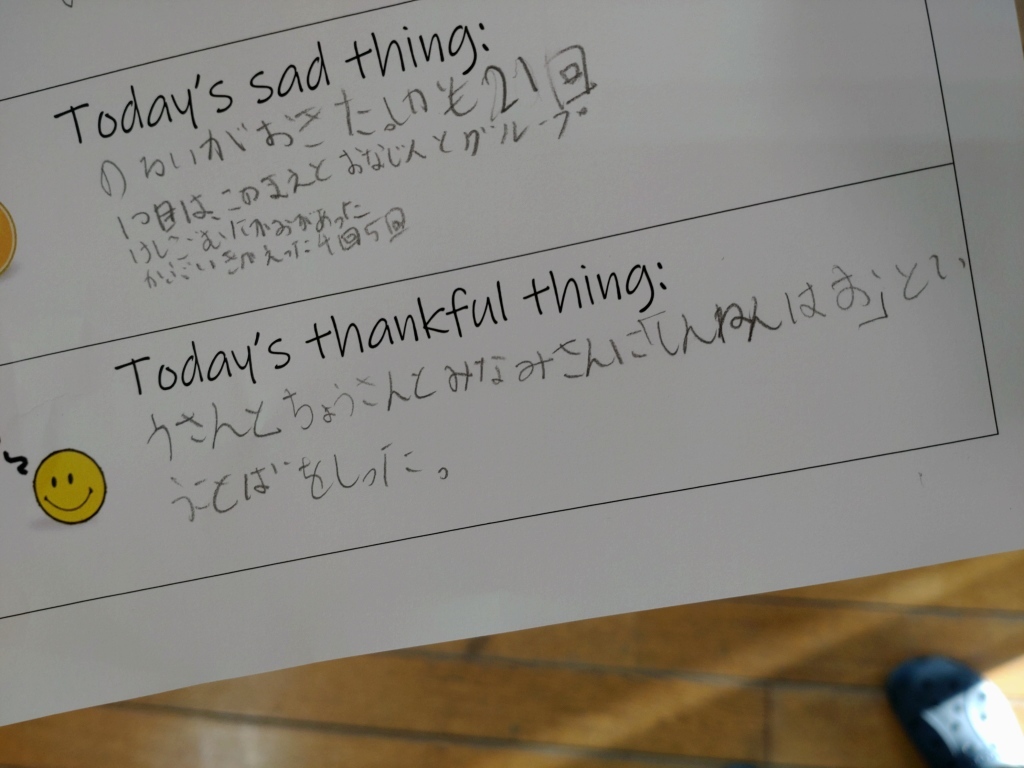 Today's sad thing:
のろいがおきた。しかも21回
1つ目は、このまえとおなじ人とグループ
けしごむにかおがあった
Today's thankful thing:
うさんとちょうさんとみなみさんに「しんねんはお」とい
うことばをしった。